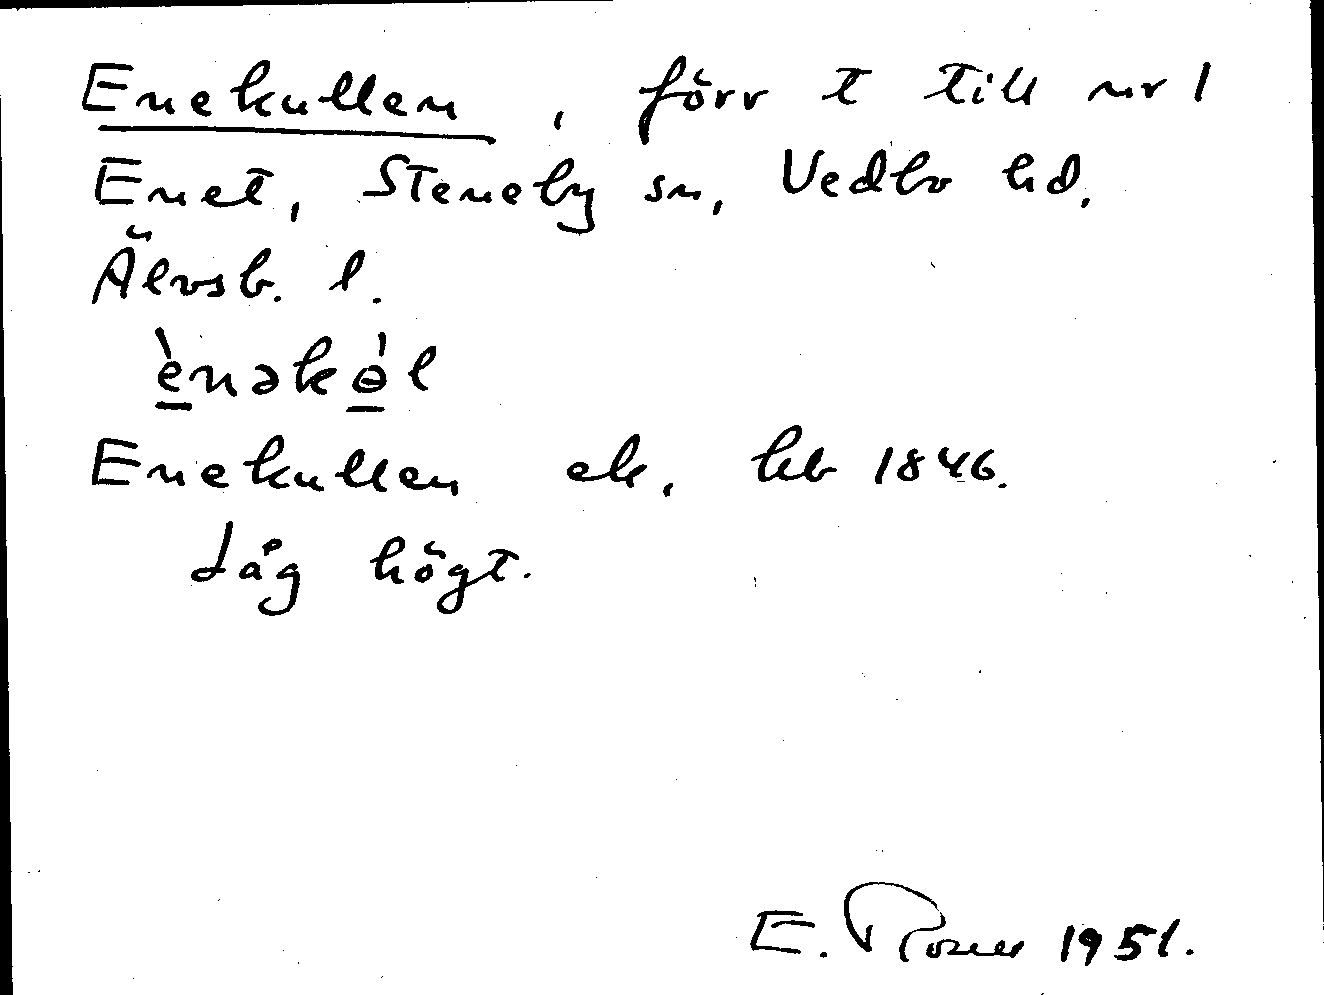 Enekullen, förr t till nr 1
Enet, Steneby sn, Vedbo hd,
Älvsb. l.
è̲nəkɵ̲́l
Enekullen ek, hb 1846.
Låg högt.
E. 1951.